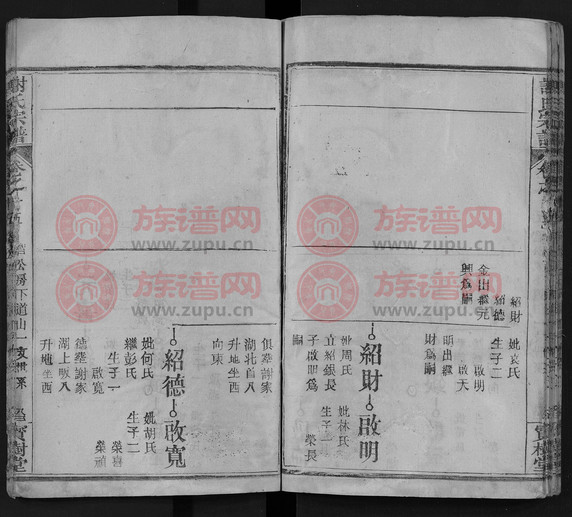 謝氏宗譜
紹財
紹德
妣袁氏
生子二
啟明
啟天
金出繼元
興為嗣
明出繼
財為嗣
紹財
啟明
妣周氏
立紹銀長
子啟明為
嗣
妣林氏
生子二
榮長
俱塟謝家
湖北首八
升地坐西
向東
紹德
啟寬
妣何氏
繼彭氏
生子二
啟寬
妣胡氏
生子二
榮喜
德塟謝家
湖上畈八
升地坐西
謝氏宗譜
松房下道山一支世系
寶樹堂
寶樹堂
族谱网
www.zupu.cn
族谱网
www.zupu.cn
族谱网
www.zupu.cn
族谱网
www.zupu.cn